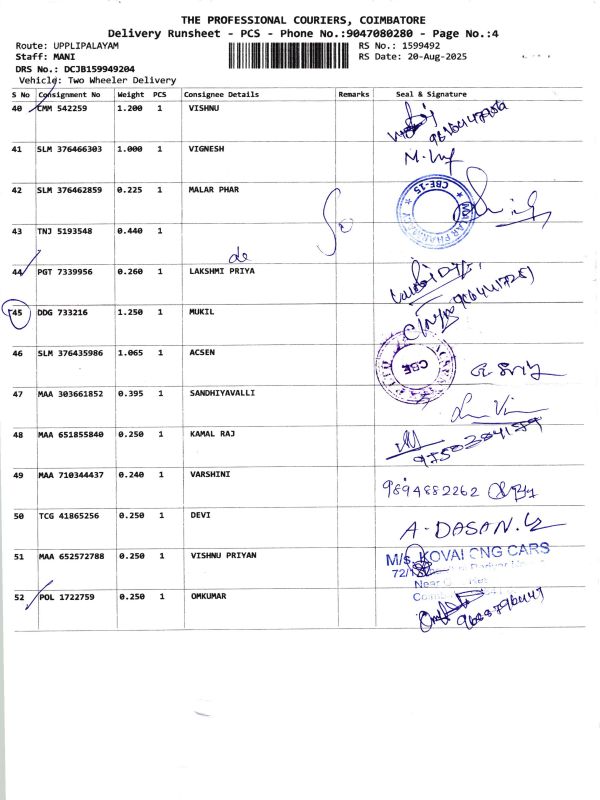 THE PROFESSIONAL COURIERS, COIMBATORE
Delivery Runsheet - PCS - Phone No.:9047080280 - Page No.:4
Route: UPPLIPALAYAM RS No.: 1599492
Staff: MANI RS Date: 20-Aug-2025
DRS No.: DCJB159949204
Vehicle: Two Wheeler Delivery
S No Consignment No Weight PCS Consignee Details Remarks Seal & Signature
40 CMM 542259 1.200 1 VISHNU
41 SLM 376466303 1.000 1 VIGNESH
42 SLM 376462859 0.225 1 MALAR PHAR
CBE-15
43 TNJ 5193548 0.440 1
de
44 PGT 7339956 0.260 1 LAKSHMI PRIYA
45 DDG 733216 1.250 1 MUKIL
46 SLM 376435986 1.065 1 ACSEN
CBE
47 MAA 303661852 0.395 1 SANDHIYAVALLI
48 MAA 651855840 0.250 1 KAMAL RAJ
49 MAA 710344437 0.240 1 VARSHINI 9894882262
50 TCG 41865256 0.250 1 DEVI A-DASAN.
51 MAA 652572788 0.250 1 VISHNU PRIYAN
M/s. KOVAI CNG CARS
52 POL 1722759 0.250 1 OMKUMAR